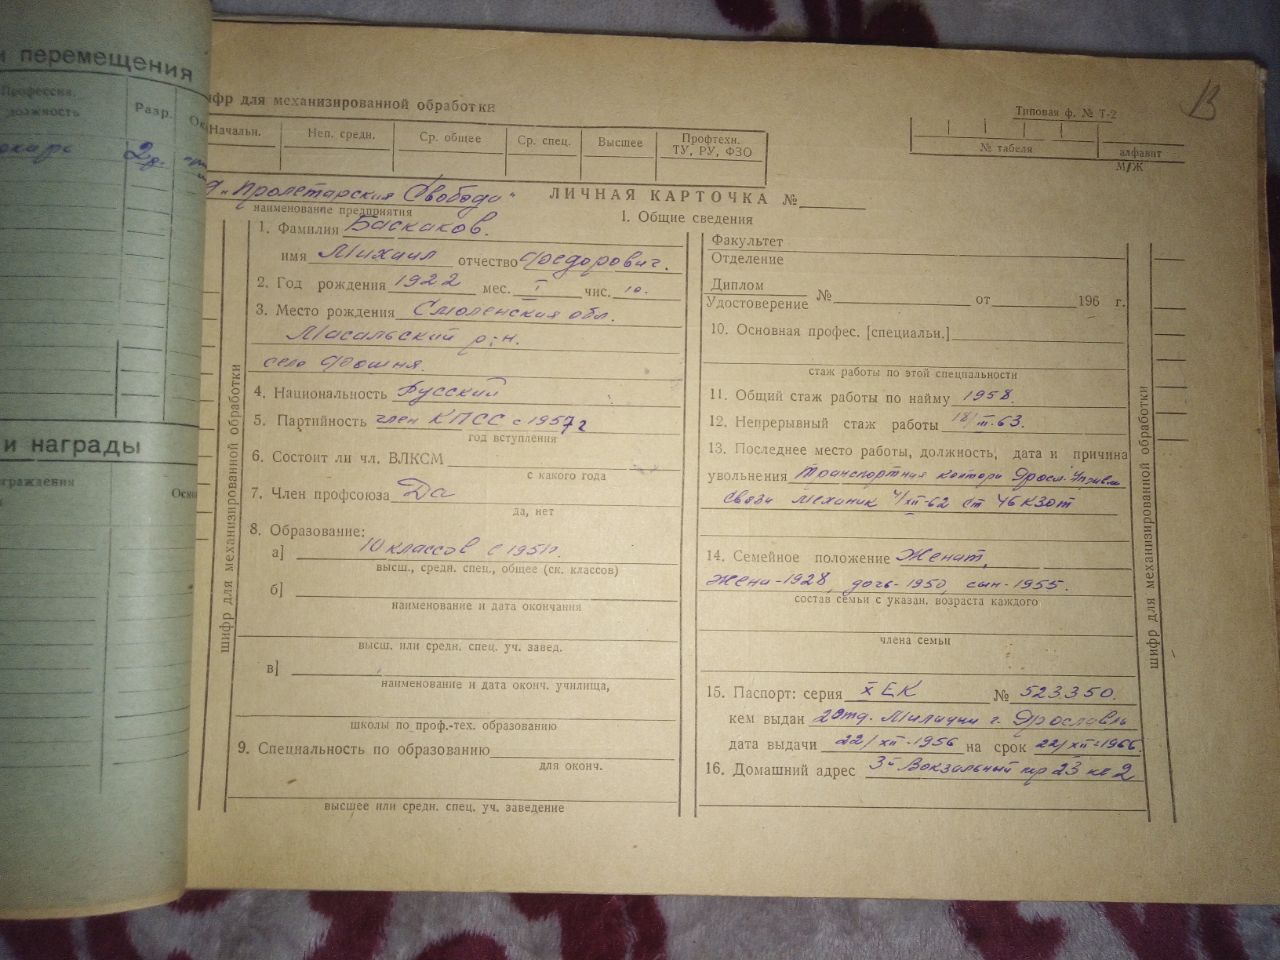 и перемещения
Профессия,
должность
Разр.
2р.
и награды
награждения
Осно
шифр для механизированной обработки
Начальн.
Неп. средн.
Ср. общее
Ср. спец.
Высшее
Профтехн.
ТУ, РУ, ФЗО
Типовая ф. № Т-2
№ табеля
алфавит
М/Ж
В
„Пролетарская Свобода“
наименование предприятия
ЛИЧНАЯ КАРТОЧКА №
1. Общие сведения
1. Фамилия Баскаков.
имя Михаил отчество Федорович.
2. Год рождения 1922 мес. I чис. 10.
3. Место рождения Смоленская обл.
Масальский р-н.
село Фошня.
4. Национальность Русский
5. Партийность член КПСС с 1957г
год вступления
6. Состоит ли чл. ВЛКСМ
с какого года
7. Член профсоюза Да
да, нет
8. Образование:
а] 10 классов с 1951г.
высш., средн. спец., общее (ск. классов)
б]
наименование и дата окончания
высш. или средн. спец. уч. завед.
в]
наименование и дата оконч. училища,
школы по проф.-тех. образованию
9. Специальность по образованию
для оконч.
высшее или средн. спец. уч. заведение
шифр для механизированной обработки
Факультет
Отделение
Диплом
Удостоверение № от 196 г.
10. Основная профес. [специальн.]
стаж работы по этой специальности
11. Общий стаж работы по найму 1958.
12. Непрерывный стаж работы 18/III-63.
13. Последнее место работы, должность, дата и причина
увольнения Транспортная контора Яросл.
связи Механик 4/XII-62 ст 46 КЗОТ
14. Семейное положение Женат,
жена-1928, дочь-1950, сын-1955.
состав семьи с указан. возраста каждого
члена семьи
15. Паспорт: серия X ЕК № 523350.
кем выдан 2 отд. Милиции г. Ярославль
дата выдачи 22/XII-1956 на срок 22/XII-1966.
16. Домашний адрес 3й Вокзальный пр 23 кв 2
шифр для механизированной обработки